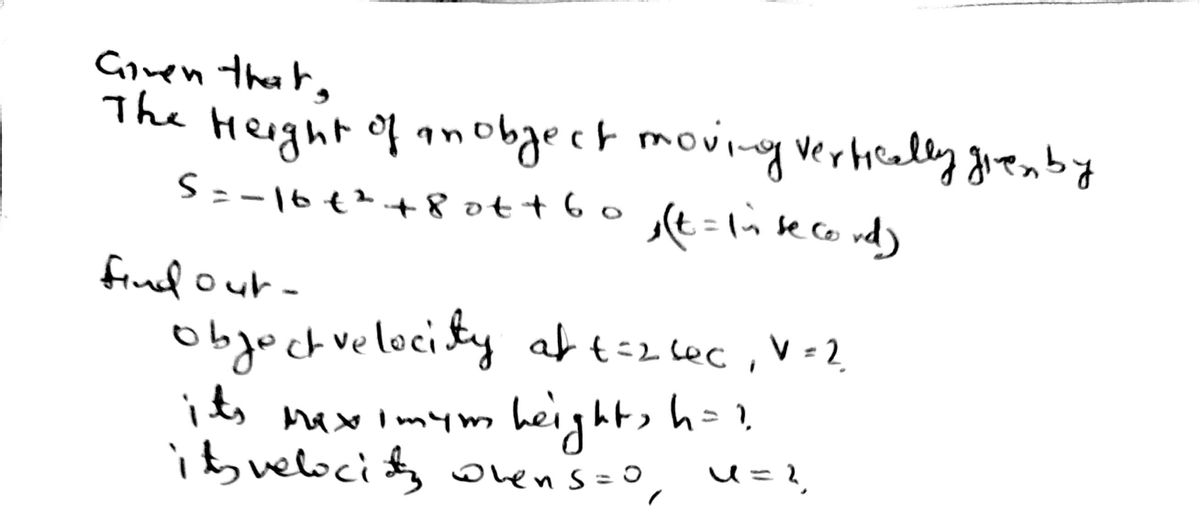 Given that,
The Height of an object moving vertically given by
S = -16t² + 80t + 60, (t = in second)
find out -
object velocity at t=2 sec, V = ?
its maximum height, h = ?
its velocity when s=0, u = ?